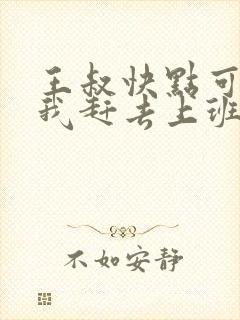 王叔快點可
我赶去上班
不如安靜